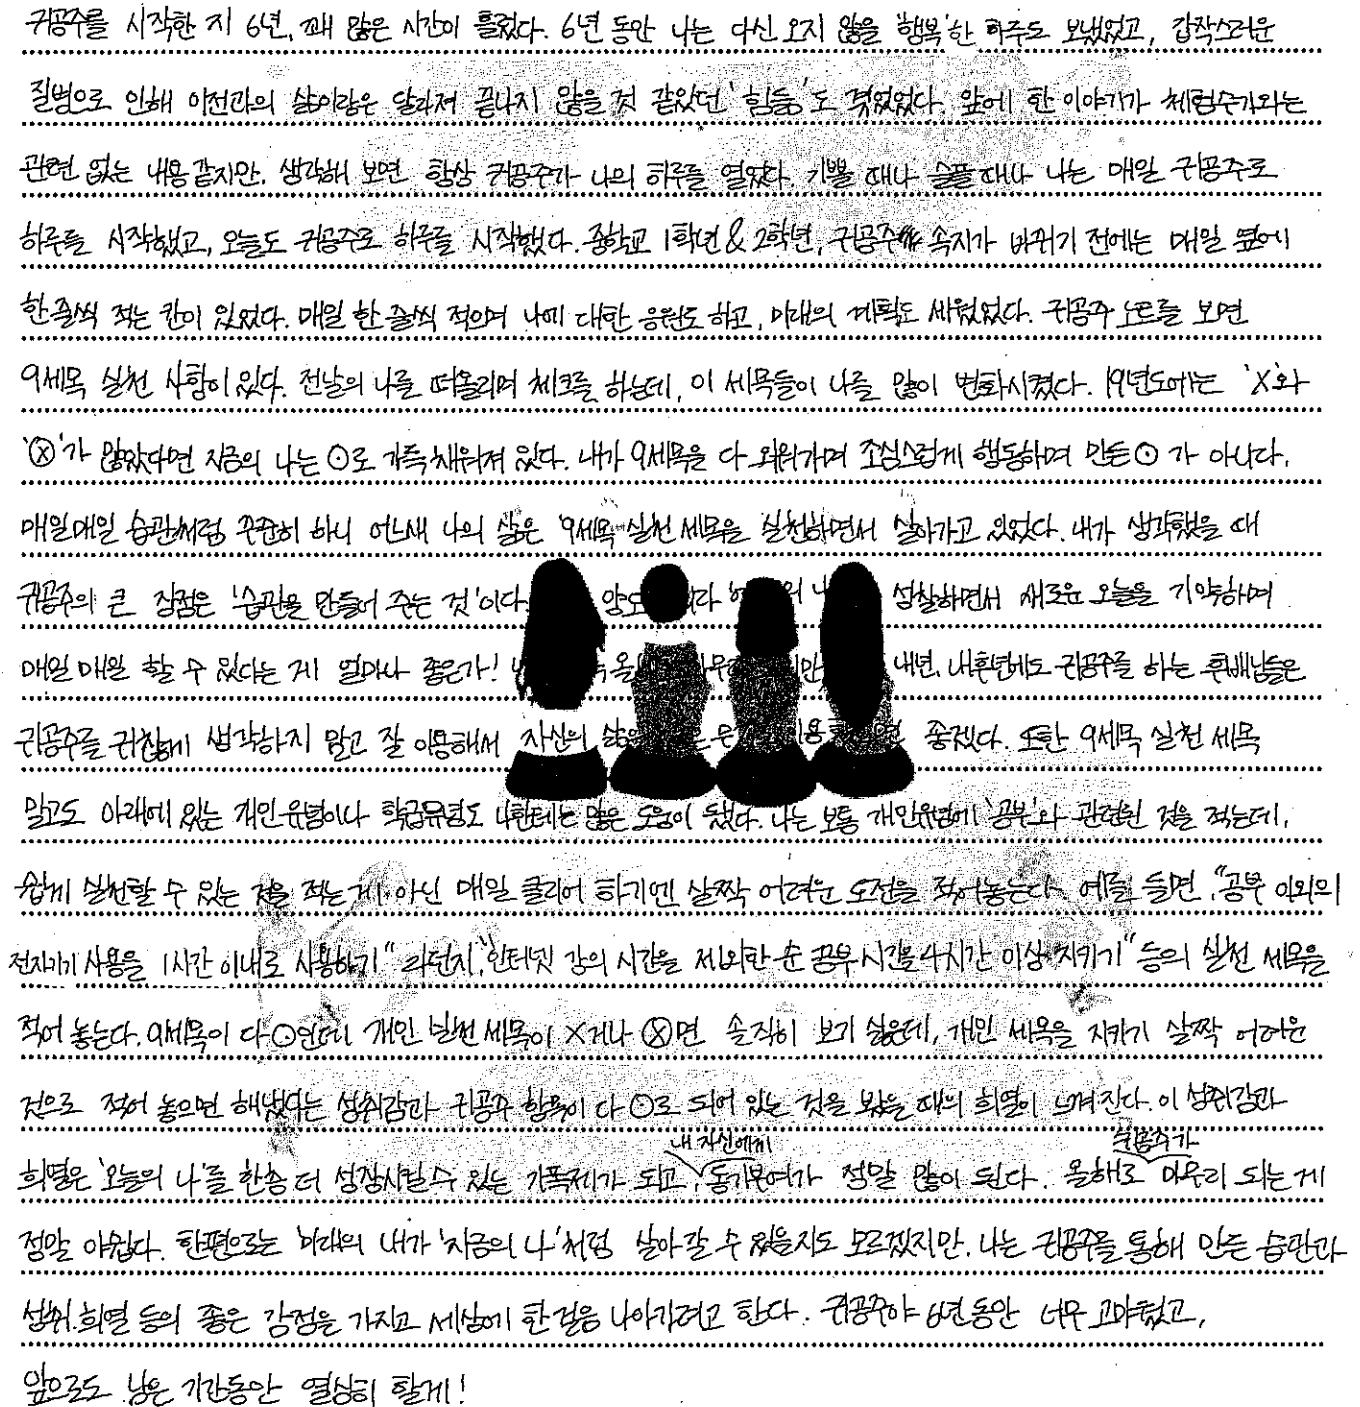 귀공주를 시작한 지 6년, 꽤 많은 시간이 흘렀다. 6년 동안 나는 다신 오지 않을 '행복'한 하루도 보냈었고, 갑작스러운
질병으로 인해 이전과의 삶이랑은 달라져 끝나지 않을 것 같았던 '힘듦'도 겪었었다. 앞에 한 이야기가 체험수기와는
관련 없는 내용 같지만, 생각해 보면 항상 귀공주가 나의 하루를 열었다. 기쁠 때나 슬플 때나 나는 매일 귀공주로
하루를 시작했고, 오늘도 귀공주로 하루를 시작했다. 중학교 1학년 & 2학년, 귀공주 속지가 바뀌기 전에는 매일 옆에
한 줄씩 적는 칸이 있었다. 매일 한 줄씩 적으며 나에 대한 응원도 하고, 미래의 계획도 세웠었다. 귀공주 노트를 보면
9세목 실천 사항이 있다. 전날의 나를 떠올리며 체크를 하는데, 이 세목들이 나를 많이 변화시켰다. 19년도에는 'X'와
'ⓧ'가 많았다면 지금의 나는 ⊙로 가득 채워져 있다. 내가 9세목을 다 외워가며 조심스럽게 행동하며 만든 ⊙가 아니다.
매일매일 습관처럼 꾸준히 하니 어느새 나의 삶은 '9세목 실천 세목을 실천하면서 살아가고 있었다. 내가 생각했을 때
귀공주의 큰 장점은 '습관을 만들어 주는 것'이다 성찰하면서 새로운 오늘을 기약하며
매일매일 할 수 있다는 게 얼마나 좋은가! 내년, 내후년에도 귀공주를 하는 후배님들은
귀공주를 귀찮게 생각하지 말고 잘 이용해서 자신의 좋겠다. 또한 9세목 실천 세목
말고도 아래에 있는 개인유념이나 학급유념도 나한테는 많은 도움이 됐다. 나는 보통 개인유념에 '공부'와 관련된 것을 적는데,
쉽게 실천할 수 있는 것을 적는 게 아닌 매일 클리어 하기엔 살짝 어려운 도전을 적어놓는다. 예를 들면, "공부 이외의
전자기기 사용을 1시간 이내로 사용하기" 라던지, "인터넷 강의 시간을 제외한 순 공부시간을 4시간 이상 지키기" 등의 실천 세목을
적어 놓는다. 9세목이 다 ⊙인데 개인 실천 세목이 X거나 ⓧ면 솔직히 보기 싫은데, 개인 세목을 지키기 살짝 어려운
것으로 적어 놓으면 해냈다는 성취감과 귀공주 항목이 다 ⊙로 되어 있는 것을 봤을 때의 희열이 느껴진다. 이 성취감과
희열은 '오늘의 나'를 한층 더 성장시킬 수 있는 기폭제가 되고, 내 자신에게 동기부여가 정말 많이 된다. 올해로 귀공주가 마무리 되는 게
정말 아쉽다. 한편으로는 '미래의 내가 '지금의 나'처럼 살아갈 수 있을지도 모르겠지만, 나는 귀공주를 통해 만든 습관과
성취, 희열 등의 좋은 감정을 가지고 세상에 한 걸음 나아가려고 한다. 귀공주야 6년 동안 너무 고마웠고,
앞으로도 남은 기간동안 열심히 할게!